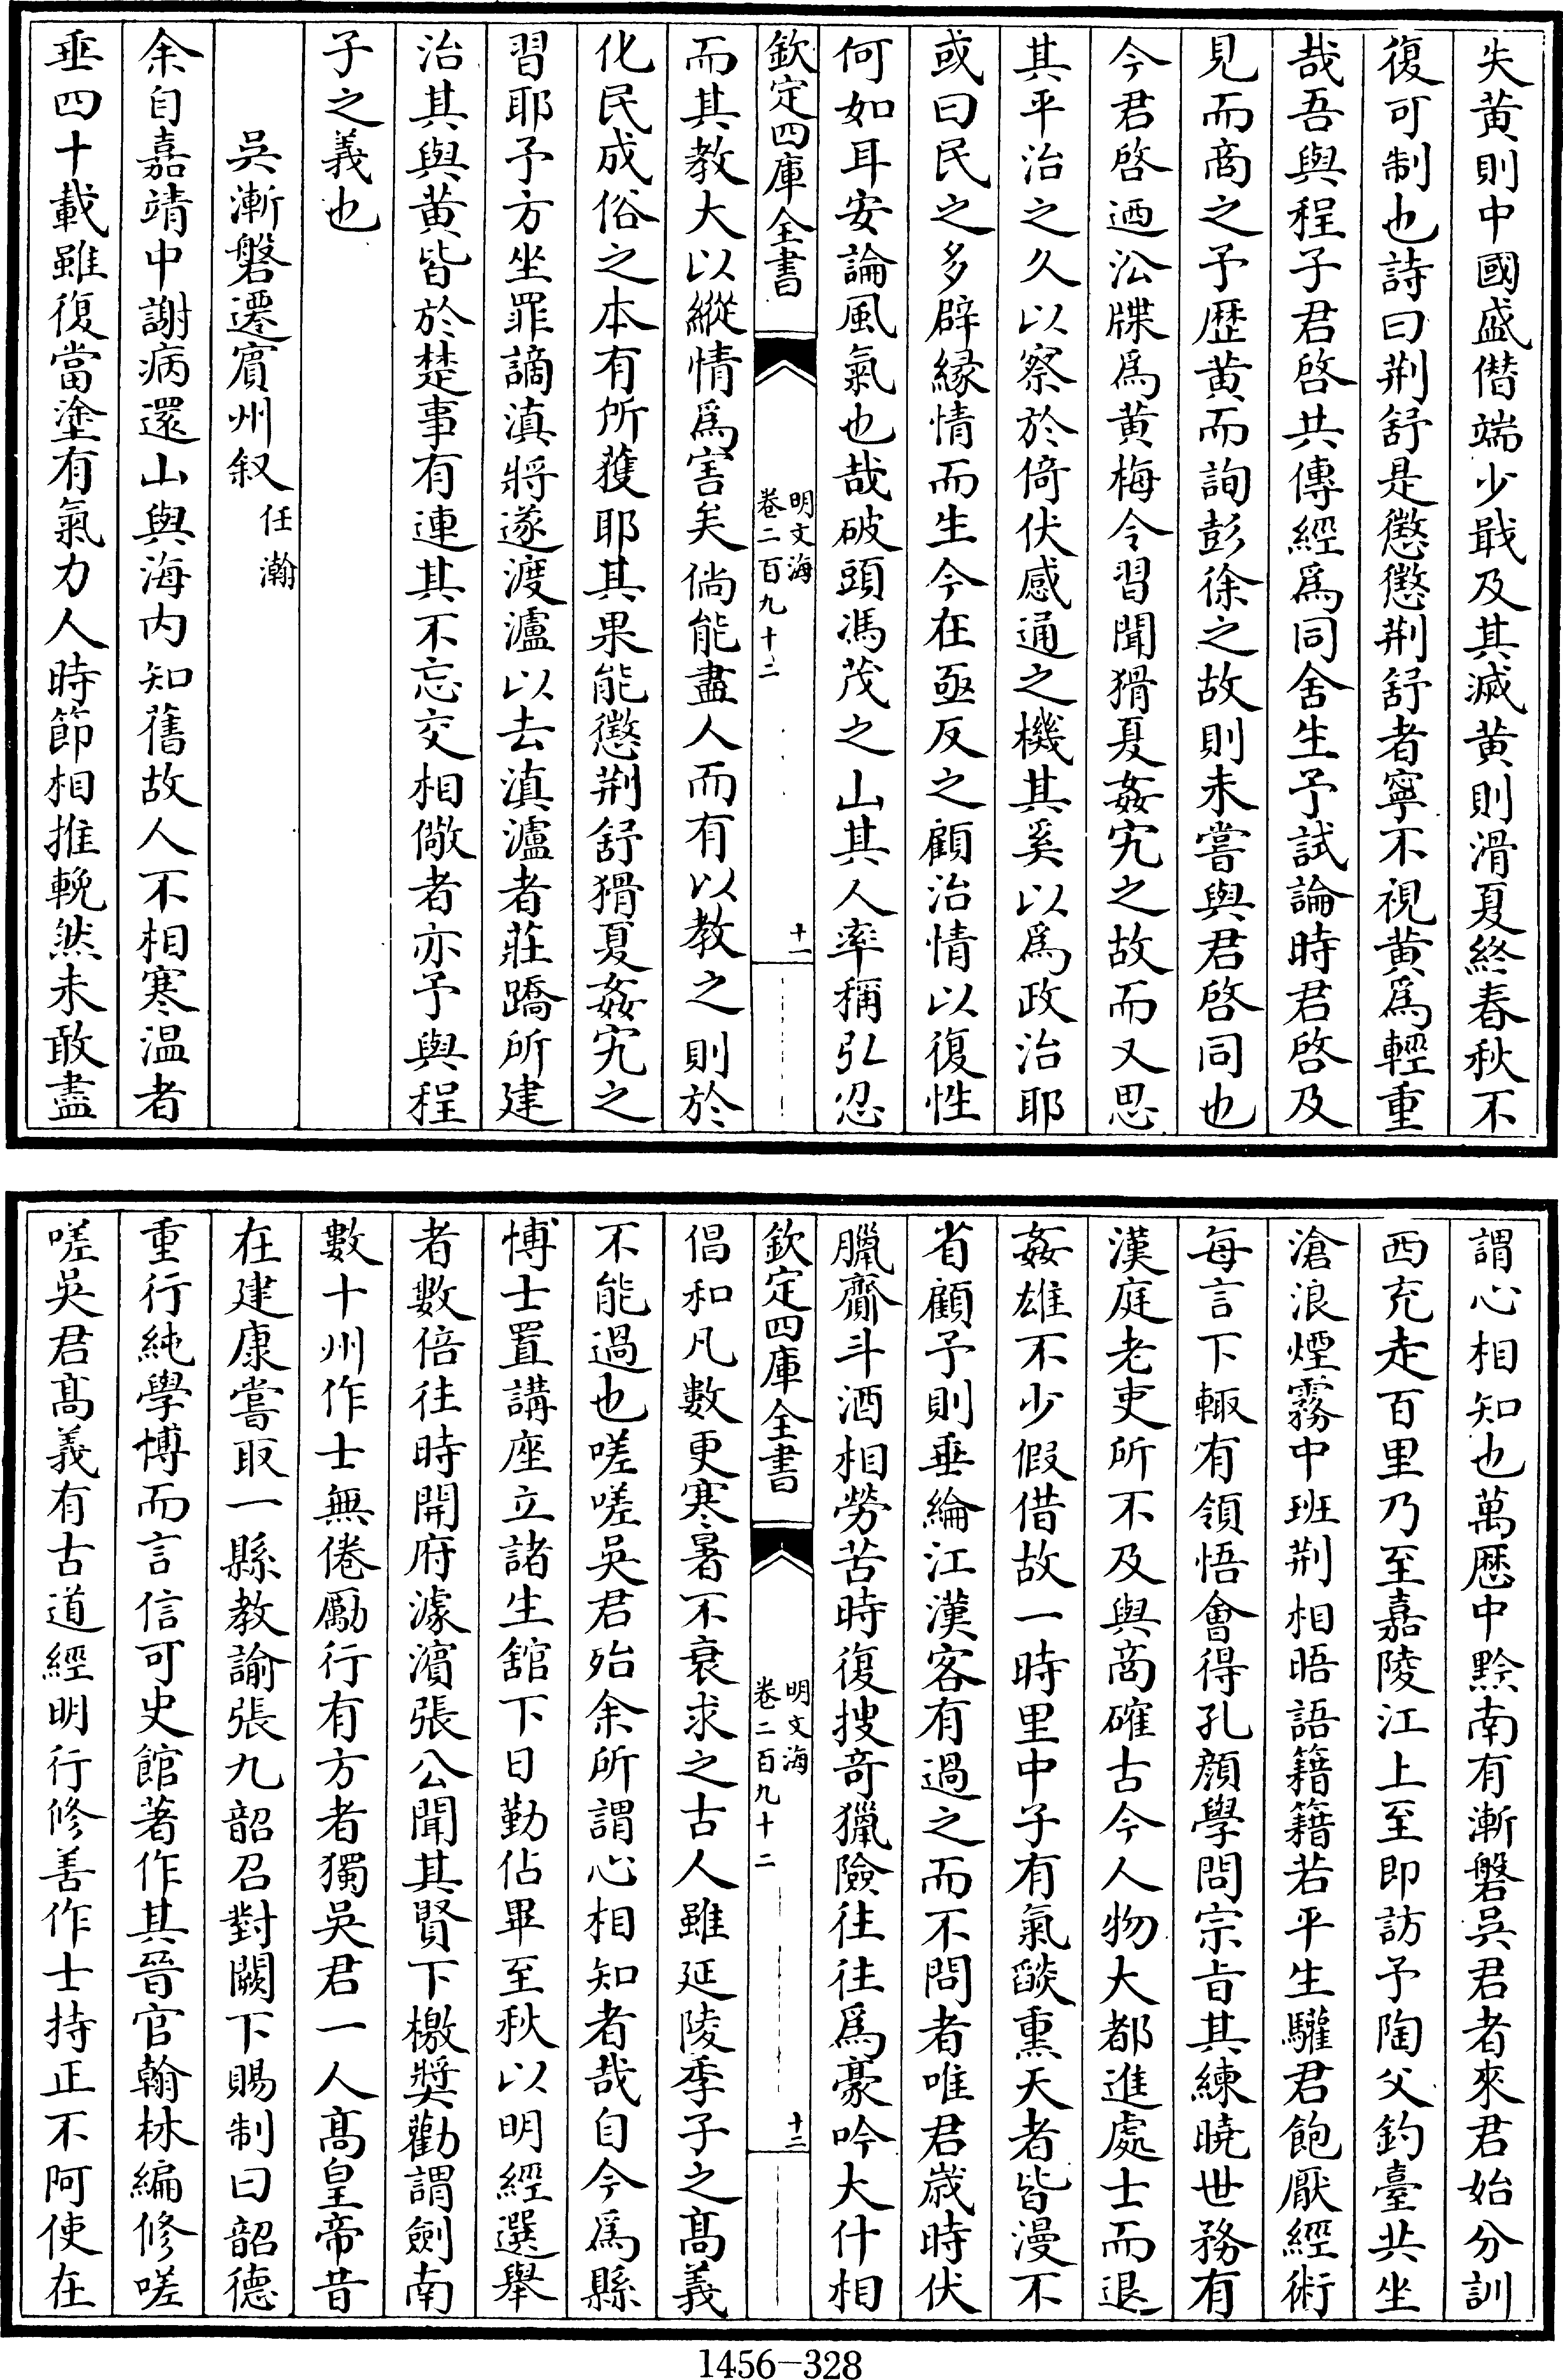 失黄則中國盛僣端少戢及其滅黄則滑夏終春秋不
復可制也詩曰荆舒是懲懲荆舒者寧不視黄爲輕重
哉吾與程子君啓共傳經爲同舍生予試論時君啓及
見而商之予歴黄而詢彭徐之故則未嘗與君啓同也
今君啓迺沿牒爲黄梅令習聞猾夏姦宄之故而又思
其平治之久以察於倚伏感通之機其奚以爲政治耶
或曰民之多辟縁情而生今在亟反之顧治情以復性
何如耳安論風氣也哉破頭馮茂之山其人率稱弘忍
欽定四庫全書
明文海
卷二百九十二
十一
而其教大以縱情爲害矣倘能盡人而有以教之則於
化民成俗之本有所獲耶其果能懲荆舒猾夏姦宄之
習耶予方坐罪謫滇將遂渡瀘以去滇瀘者莊蹻所建
治其與黄皆於楚事有連其不忘交相儆者亦予與程
子之義也
吳漸磐遷賔州叙　任瀚
余自嘉靖中謝病還山與海内知舊故人不相寒温者
垂四十載雖復當塗有氣力人時節相推輓然未敢盡
謂心相知也萬厯中黔南有漸磐吳君者來君始分訓
西充走百里乃至嘉陵江上至即訪予陶父釣臺共坐
滄浪煙霧中班荆相晤語籍籍若平生驩君飽厭經術
每言下輙有領悟會得孔顔學問宗㫖其練曉世務有
漢庭老吏所不及與商確古今人物大都進處士而退
姦雄不少假借故一時里中子有氣燄熏天者皆漫不
省顧予則垂綸江漢客有過之而不問者唯君嵗時伏
臘齎斗酒相勞苦時復搜竒獵險往往爲豪吟大什相
欽定四庫全書
明文海
卷二百九十二
十二
倡和凡數更寒暑不衰求之古人雖延陵季子之髙義
不能過也嗟嗟吳君殆余所謂心相知者哉自今爲縣
博士置講座立諸生舘下日勤佔畢至秋以明經選舉
者數倍往時開府濠濵張公聞其賢下檄奬勸謂劍南
數十州作士無倦勵行有方者獨吳君一人髙皇帝昔
在建康嘗取一縣教諭張九韶召對闕下賜制曰韶德
重行純學博而言信可史館著作其晉官翰林編修嗟
嗟吳君髙義有古道經明行修善作士持正不阿使在
1456—328